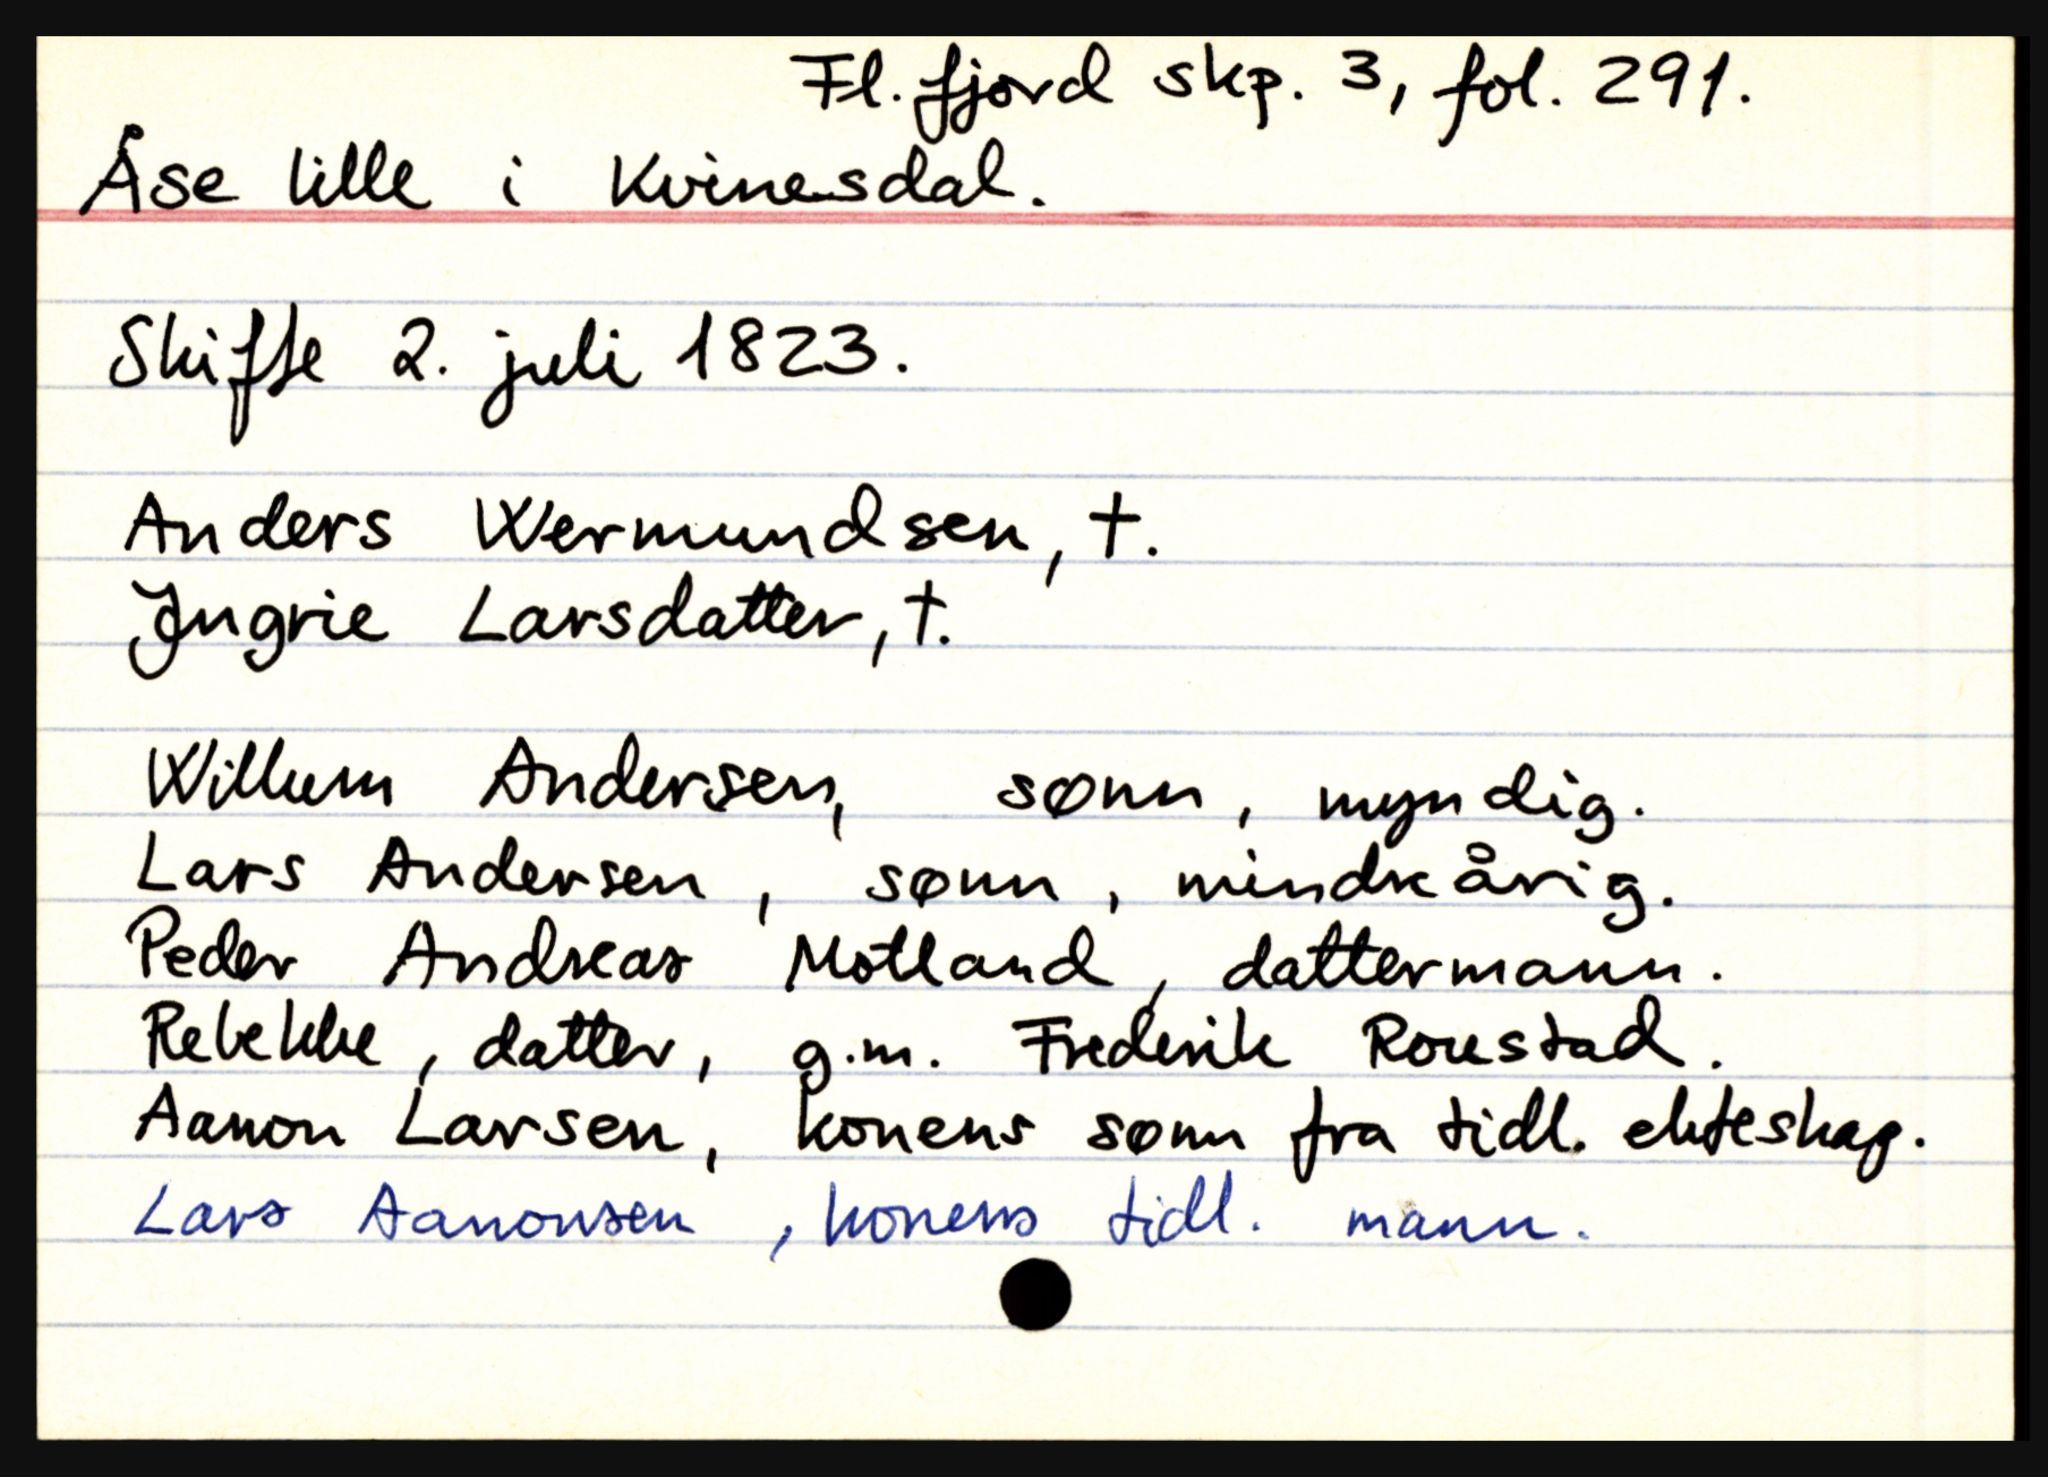 Fl.fjord skp. 3, fol. 291.
Åse lille i Kvinesdal.
Skifte 2. juli 1823.
Anders Wermundsen, †.
Yngrie Larsdatter, †.
Willum Andersen, sønn, myndig.
Lars Andersen, sønn, mindreårig.
Peder Andreas Motland, dattermann.
Rebekke, datter, g.m. Frederik Roustad.
Aanon Larsen, konens sønn fra tidl. ekteskap.
Lars Aanonsen, konens tidl. mann.